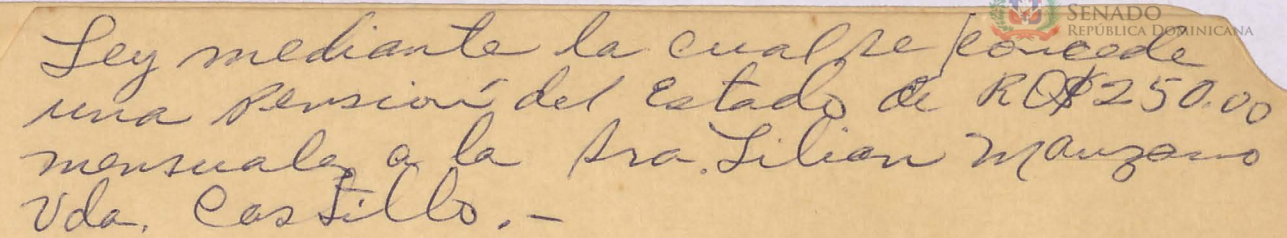 SENADO
REPÚBLICA DOMINICANA
Ley mediante la cual se concede
una Pensión del Estado de RD$250.00
mensuales a la Sra. Lilian Manzano
Vda. Castillo.-